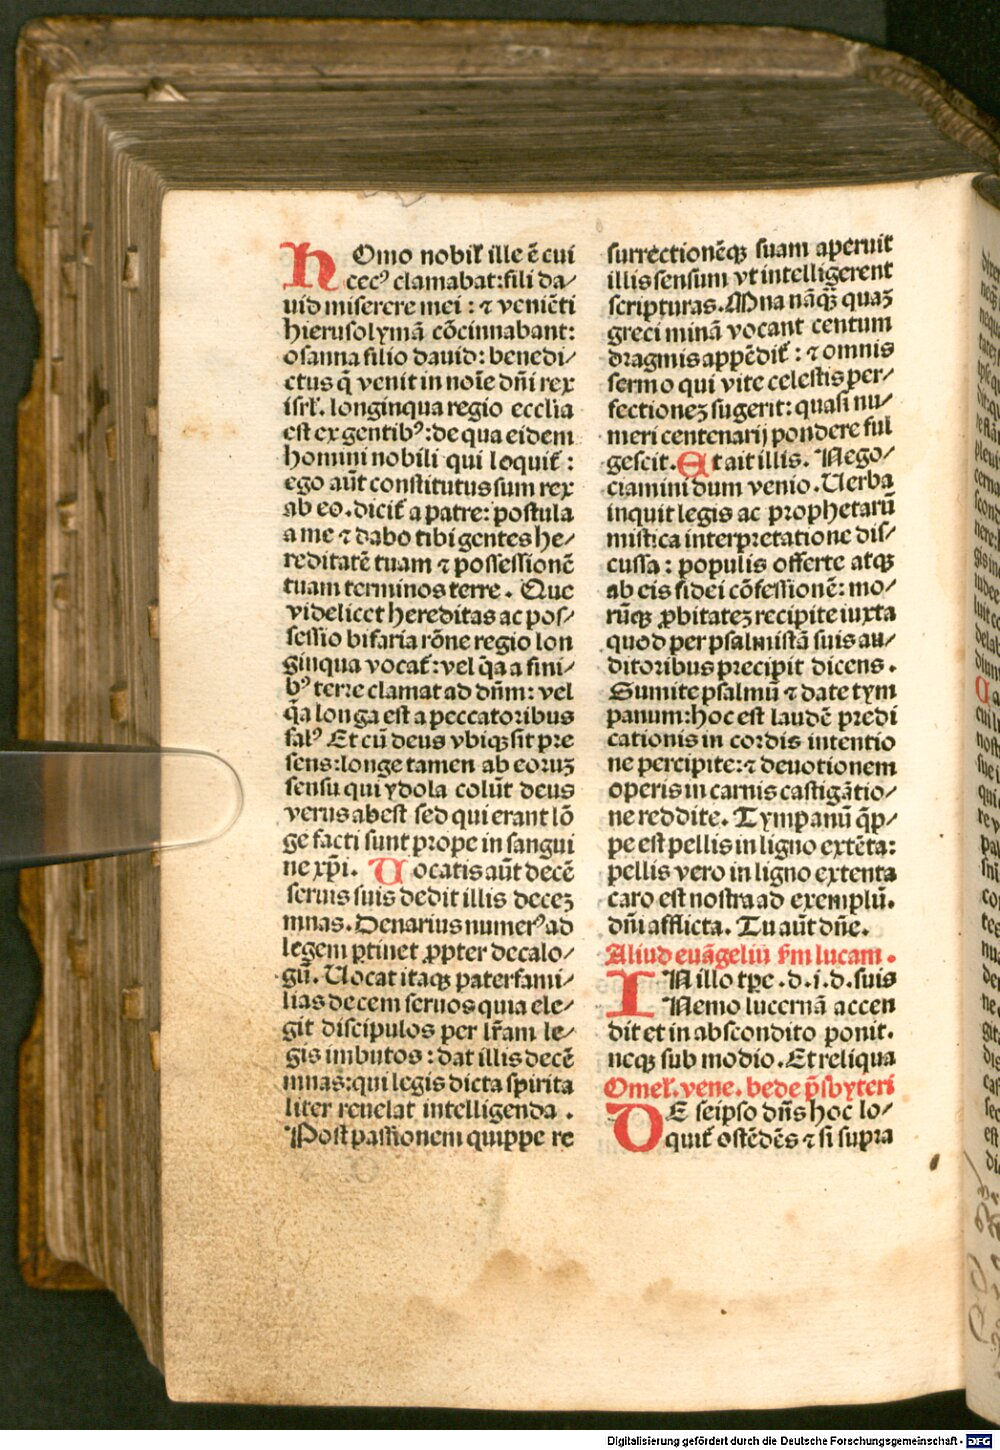 HOmo nobil̕ ille ē cui
cecꝰ clamabat: fili da⸗
uid miserere mei : ⁊ veniēti
hierusolymā cōcinnabant:
osanna filio dauid: benedi⸗
ctus q̄ venit in noīe dn̄i rex
isrl̕. longinqua regio ecclīa
est ex gentibꝰ: de qua eidem
homini nobili qui loquit̕ :
ego aūt constitutus sum rex
ab eo. dicit̕ a patre: postula
a me ⁊ dabo tibi gentes he⸗
reditatē tuam ⁊ possessionē
tuam terminos terre . Que
videlicet hereditas ac pos⸗
sessio bifaria rōne regio lon
ginqua vocat̕: vel q̄a a fini⸗
bꝰ terre clamat ad dn̄m: vel
q̄a longa est a peccatoribus
salꝰ Et cū deus vbiqꝫ sit pre
sens: longe tamen ab eoruꝫ
sensu qui ydola colūt deus
verus abest sed qui erant lō
ge facti sunt prope in sangui
ne xp̄i. Uocatis aūt decē
seruis suis dedit illis deceꝫ
mnas. Denarius numerꝰ ad
legem ꝑtinet ꝓpter decalo⸗
gū. Uocat itaqꝫ paterfami⸗
lias decem seruos quia ele⸗
git discipulos per lr̄am le⸗
gis imbutos : dat illis decē
mnas: qui legis dicta spirita
liter reuelat intelligenda .
Post passionem quippe re
surrectionēqꝫ suam aperuit
illis sensum vt intelligerent
scripturas. Mna nāqꝫ quaꝫ
greci minā vocant centum
dragmis appēdit̕ : ⁊ omnis
sermo qui vite celestis per⸗
fectioneꝫ sugerit: quasi nu⸗
meri centenarij pondere ful
gescit. Et ait illis. Nego⸗
ciamini dum venio. Uerba
inquit legis ac prophetarū
mistica interpretatione dis⸗
cussa : populis offerte atqꝫ
ab eis fidei cōfessionē: mo⸗
rūqꝫ ꝓbitateꝫ recipite iuxta
quod per psalmistā suis au⸗
ditoribus precipit dicens .
Sumite psalmū ⁊ date tym
panum: hoc est laudē predi
cationis in cordis intentio
ne percipite: ⁊ deuotionem
operis in carnis castigātio⸗
ne reddite. Tympanū q̄p⸗
pe est pellis in ligno extēta:
pellis vero in ligno extenta
caro est nostra ad exemplū.
dn̄i afflicta. Tu aūt dn̄e.
Aliud euāgeliū ẜm lucam .
IN illo tp̄e . d . i . d . suis
Nemo lucernā accen
dit et in abscondito ponit.
neqꝫ sub modio. Et reliqua
Omel̕. vene. bede p̄sbyteri
DE seipso dn̄s hoc lo⸗
quit̕ ostēdēs ⁊ si supra
Digitalisierung gefördert durch die Deutsche Forschungsgemeinschaft - DFG